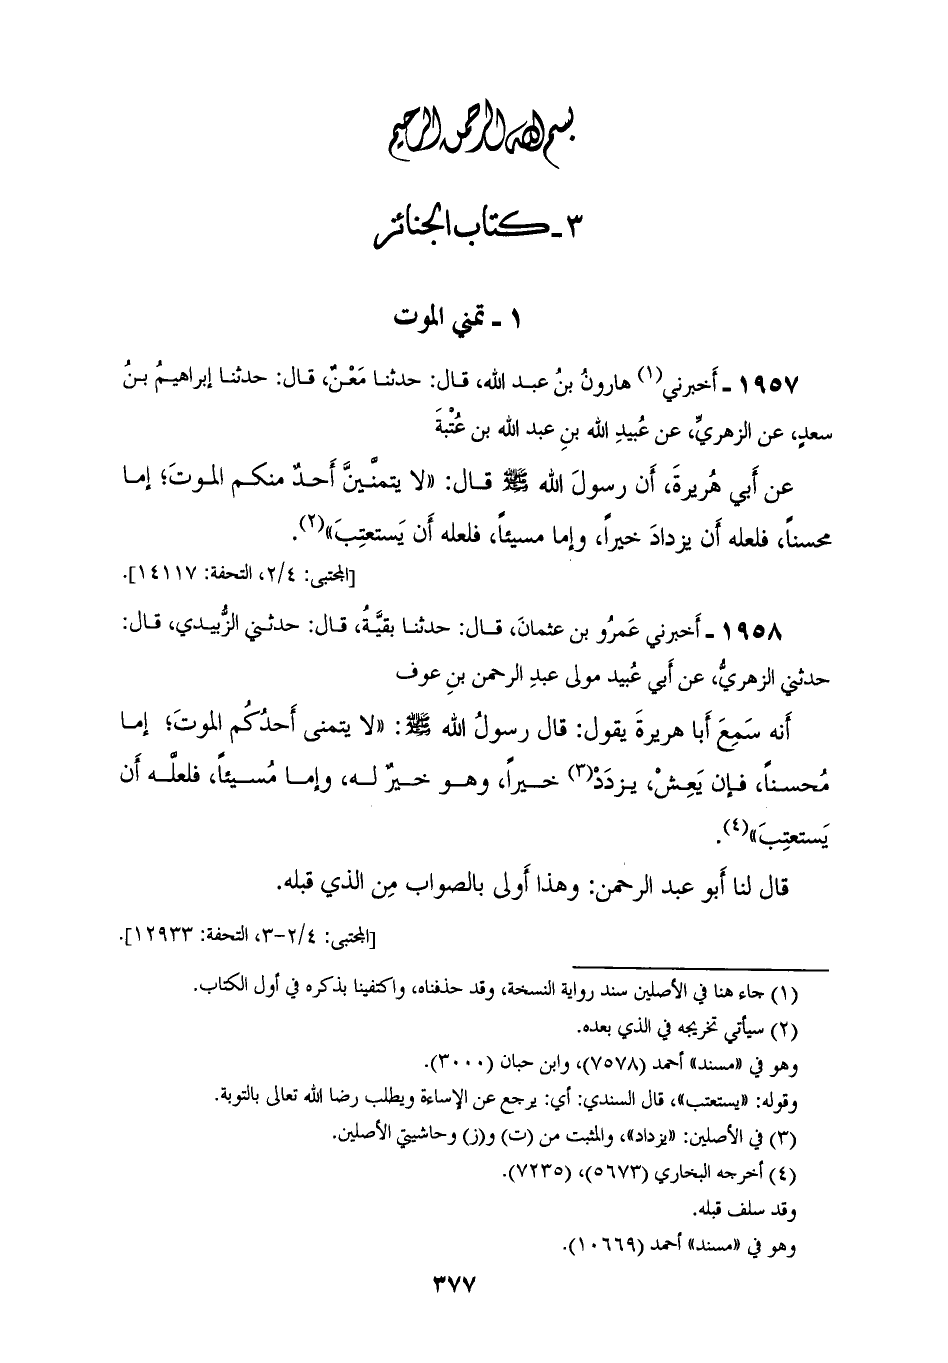 بسم الله الرحمن الرحيم
٣ ـ كتاب الجنائز
١ ـ تمني الموت
١٩٥٧ ـ أخبرني(١) هارونُ بنُ عبد الله، قال: حدثنا مَعْنٌ، قال: حدثنا إبراهيمُ بنُ
سعدٍ، عن الزهريِّ، عن عُبيدِ الله بنِ عبد الله بن عُتْبةَ
عن أبي هُريرةَ، أن رسولَ الله ﷺ قال: «لا يتمنَّينَّ أحدٌ منكم الموتَ؛ إما
محسناً، فلعله أن يزدادَ خيراً، وإما مسيئاً، فلعله أن يَستعتِبَ»(٢).
[المجتبى: ٢/٤، التحفة: ١٤١١٧].
١٩٥٨ ـ أخبرني عَمرُو بن عثمانَ، قال: حدثنا بقيَّةُ، قال: حدثني الزُّبيدي، قال:
حدثني الزهريُّ، عن أبي عُبيد مولى عبدِ الرحمن بنِ عوف
أنه سَمِعَ أبا هريرةَ يقول: قال رسولُ الله ﷺ: «لا يتمنى أحدُكُم الموتَ؛ إما
مُحسناً، فإن يَعِشْ، يزدَدْ(٣) خيراً، وهو خيرٌ له، وإما مُسيئاً، فلعلَّه أن
يَستعتِبَ»(٤).
قال لنا أبو عبد الرحمن: وهذا أولى بالصواب مِن الذي قبله.
[المجتبى: ٢/٤-٣، التحفة: ١٢٩٣٣].
(١) جاء هنا في الأصلين سند رواية النسخة، وقد حذفناه، واكتفينا بذكره في أول الكتاب.
(٢) سيأتي تخريجه في الذي بعده.
وهو في «مسند» أحمد (٧٥٧٨)، وابن حبان (٣٠٠٠).
وقوله: «يستعتب»، قال السندي: أي: يرجع عن الإساءة ويطلب رضا الله تعالى بالتوبة.
(٣) في الأصلين: «يزداد»، والمثبت من (ت) و(ز) وحاشيتي الأصلين.
(٤) أخرجه البخاري (٥٦٧٣)، (٧٢٣٥).
وقد سلف قبله.
وهو في «مسند» أحمد (١٠٦٦٩).
٣٧٧